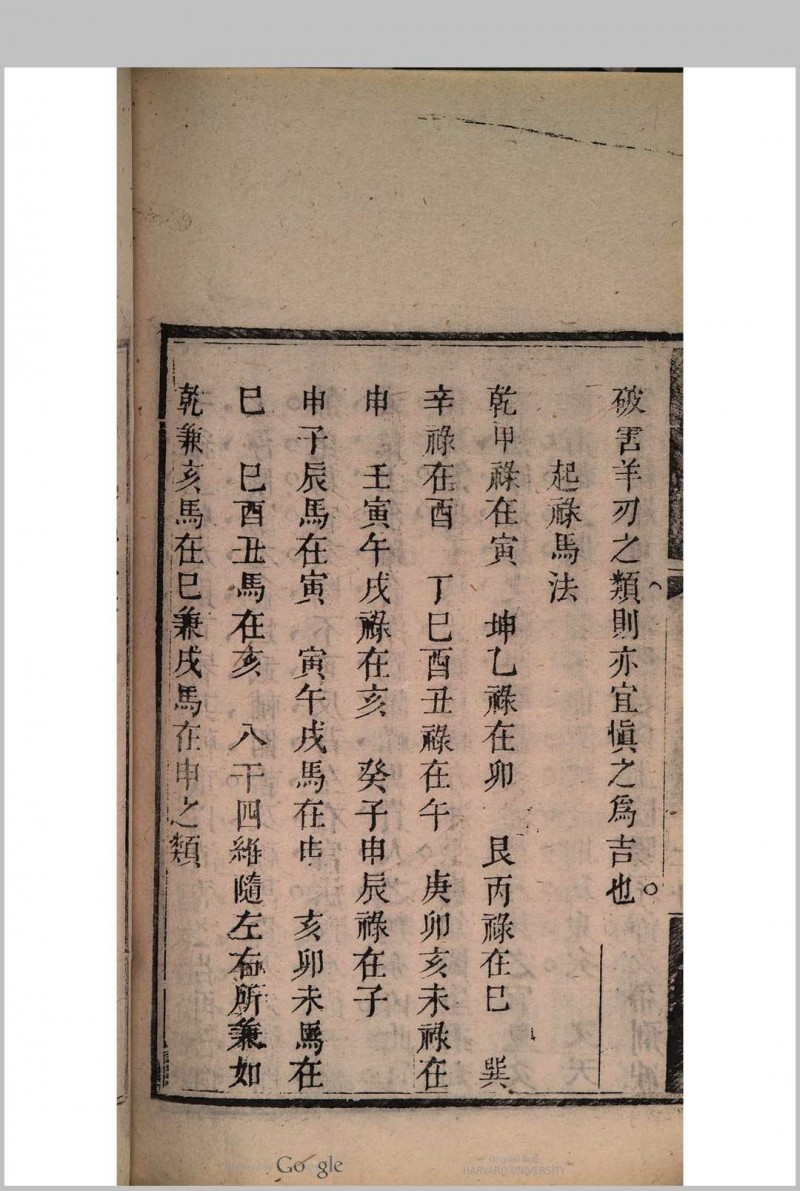 破害羊刃之類則亦宜慎之爲吉也。
起祿馬法
乾甲祿在寅　坤乙祿在卯　艮丙祿在巳　巽
辛祿在酉　丁巳酉丑祿在午　庚卯亥未祿在
申　壬寅午戌祿在亥　癸子申辰祿在子
申子辰馬在寅　寅午戌馬在申　亥卯未馬在
巳　巳酉丑馬在亥　八干四維隨左右所兼如
乾兼亥馬在巳兼戌馬在申之類
Google
Original from
HARVARD UNIVERSITY